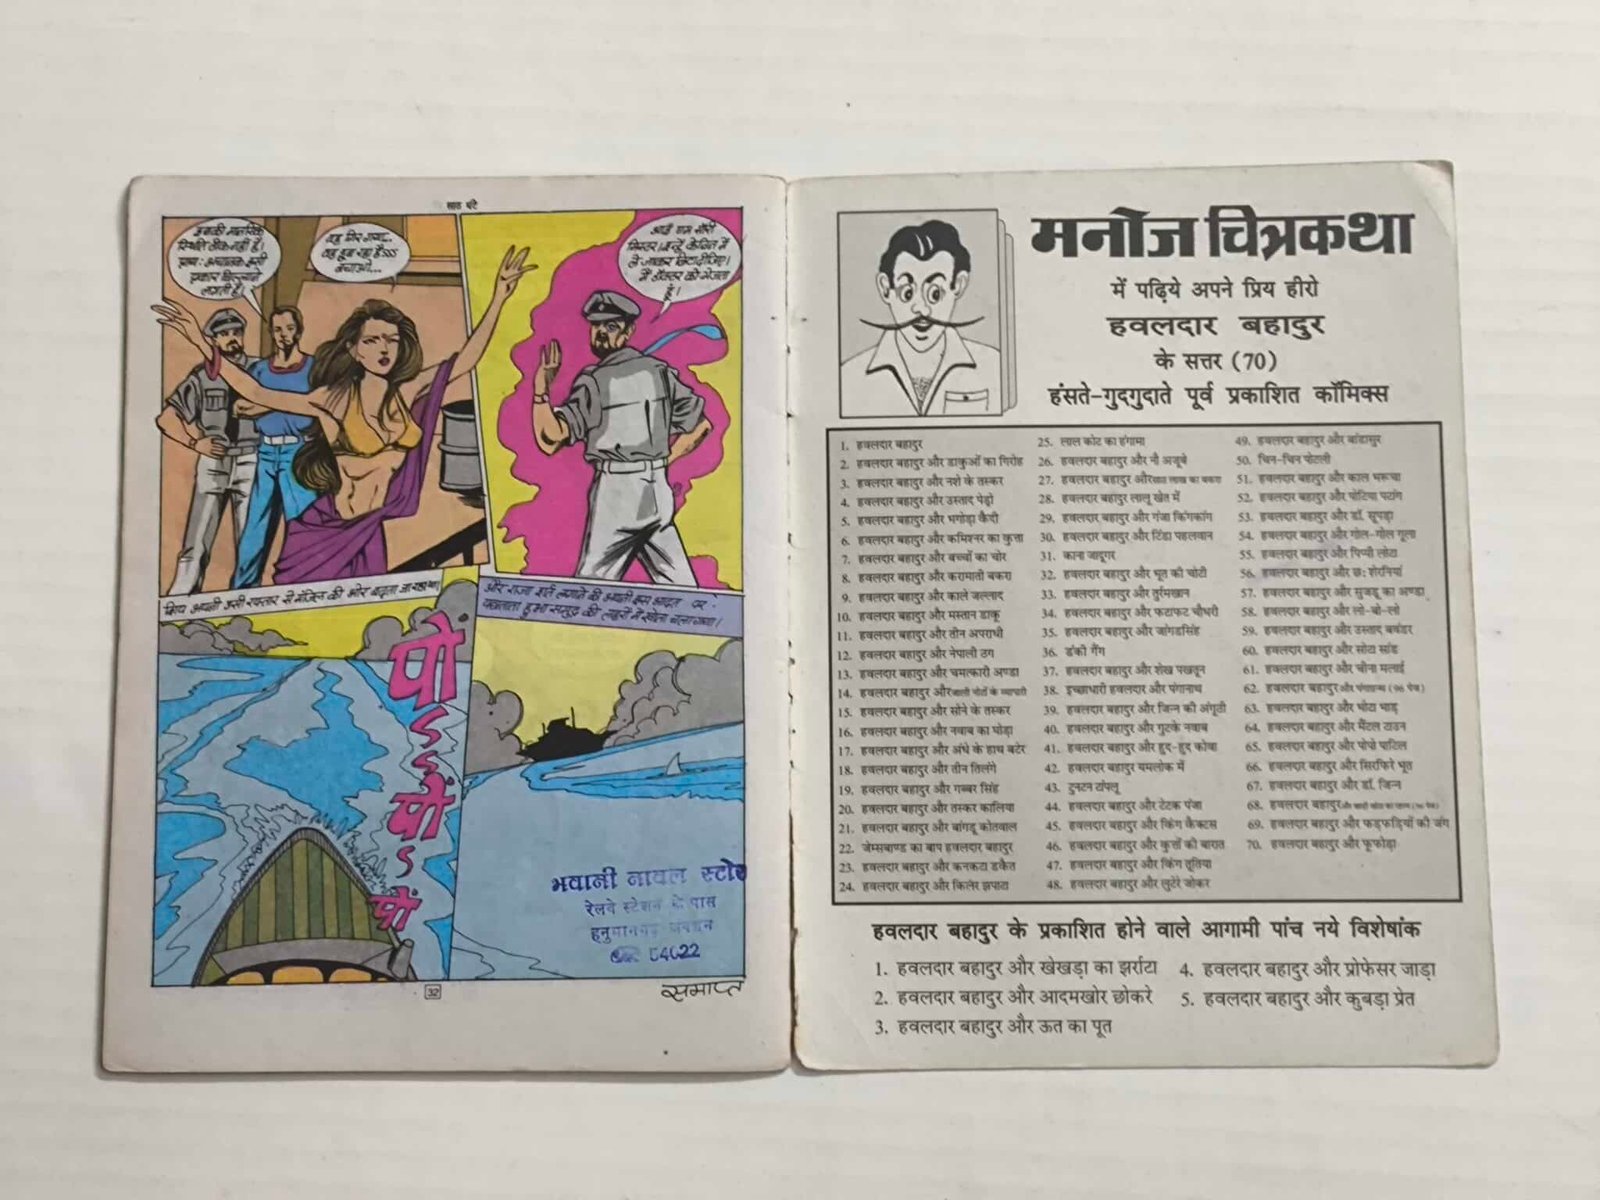 सात घंटे
इसकी मानसिक
स्थिति ठीक नहीं है।
प्रायः अचानक इसी
प्रकार चिल्लाने
लगती है।
वह गिर गया...
वह डूब रहा हैsss
बचाओ...
आई एम सॉरी
मिस्टर। इन्हें केबिन में
ले जाकर लिटा दीजिए।
मैं डॉक्टर को भेजता
हूं।
शिप अपनी उसी रफ्तार से मंजिल की ओर बढ़ता जा रहा था।
और राजा शर्त लगाने की अपनी इस आदत पर
पछताता हुआ समुद्र की लहरों में खोता चला गया।
पों
ऽ
ऽ
पों
ऽ
पों
भवानी नावल स्टोर
रेलवे स्टेशन के पास
हनुमानगढ़ जंक्शन
54622
32
समाप्त
मनोज चित्रकथा
में पढ़िये अपने प्रिय हीरो
हवलदार बहादुर
के सत्तर (70)
हंसते-गुदगुदाते पूर्व प्रकाशित कॉमिक्स
1. हवलदार बहादुर
2. हवलदार बहादुर और डाकुओं का गिरोह
3. हवलदार बहादुर और नशे के तस्कर
4. हवलदार बहादुर और उस्ताद पेड्रो
5. हवलदार बहादुर और भगोड़ा कैदी
6. हवलदार बहादुर और कमिश्नर का कुत्ता
7. हवलदार बहादुर और बच्चों का चोर
8. हवलदार बहादुर और करामाती बकरा
9. हवलदार बहादुर और काले जल्लाद
10. हवलदार बहादुर और मस्तान डाकू
11. हवलदार बहादुर और तीन अपराधी
12. हवलदार बहादुर और नेपाली ठग
13. हवलदार बहादुर और चमत्कारी अण्डा
14. हवलदार बहादुर और जाली नोटों के व्यापारी
15. हवलदार बहादुर और सोने के तस्कर
16. हवलदार बहादुर और नवाब का घोड़ा
17. हवलदार बहादुर और अंधे के हाथ बटेर
18. हवलदार बहादुर और तीन तिलंगे
19. हवलदार बहादुर और गब्बर सिंह
20. हवलदार बहादुर और तस्कर कालिया
21. हवलदार बहादुर और बांगडू कोतवाल
22. जेम्सबाण्ड का बाप हवलदार बहादुर
23. हवलदार बहादुर और कनकटा डकैत
24. हवलदार बहादुर और किलर झपाटा
25. लाल कोट का हंगामा
26. हवलदार बहादुर और नौ अजूबे
27. हवलदार बहादुर और सात लाख का बकरा
28. हवलदार बहादुर लालू खेत में
29. हवलदार बहादुर और गंजा किंगकांग
30. हवलदार बहादुर और टिंडा पहलवान
31. काना जादूगर
32. हवलदार बहादुर और भूत की चोटी
33. हवलदार बहादुर और तुर्रमखान
34. हवलदार बहादुर और फटाफट चौधरी
35. हवलदार बहादुर और जांगडसिंह
36. डंकी गैंग
37. हवलदार बहादुर और शेख पखतून
38. इच्छाधारी हवलदार और पंगानाथ
39. हवलदार बहादुर और जिन्न की अंगूठी
40. हवलदार बहादुर और गुटके नवाब
41. हवलदार बहादुर और हुद-हुद कोबा
42. हवलदार बहादुर यमलोक में
43. टुनटन टांपलू
44. हवलदार बहादुर और टेटक पंजा
45. हवलदार बहादुर और किंग कैक्टस
46. हवलदार बहादुर और कुत्तों की बारात
47. हवलदार बहादुर और किंग तूतिया
48. हवलदार बहादुर और लुटेरे जोकर
49. हवलदार बहादुर और बांडासुर
50. चिन-चिन पोटली
51. हवलदार बहादुर और काल भरूचा
52. हवलदार बहादुर और पोटिया पटांग
53. हवलदार बहादुर और डॉ. सूपड़ा
54. हवलदार बहादुर और गोल-गोल गूला
55. हवलदार बहादुर और पिप्पी लोटा
56. हवलदार बहादुर और छः शेरनियां
57. हवलदार बहादुर और सुजडू का अण्डा
58. हवलदार बहादुर और लो-बो-लो
59. हवलदार बहादुर और उस्ताद बवंडर
60. हवलदार बहादुर और सोटा सांड
61. हवलदार बहादुर और चीना मलाई
62. हवलदार बहादुर और पंगाजन्य (96 पेज)
63. हवलदार बहादुर और भोटा भाड़
64. हवलदार बहादुर और मैंटल टाउन
65. हवलदार बहादुर और पोपो पाटिल
66. हवलदार बहादुर और सिरफिरे भूत
67. हवलदार बहादुर और डॉ. जिन्न
68. हवलदार बहादुर
69. हवलदार बहादुर और फड़फड़ियों की जंग
70. हवलदार बहादुर और फूफोड़ा
हवलदार बहादुर के प्रकाशित होने वाले आगामी पांच नये विशेषांक
1. हवलदार बहादुर और खेखड़ा का झर्राटा
2. हवलदार बहादुर और आदमखोर छोकरे
3. हवलदार बहादुर और ऊत का पूत
4. हवलदार बहादुर और प्रोफेसर जाड़ा
5. हवलदार बहादुर और कुबड़ा प्रेत